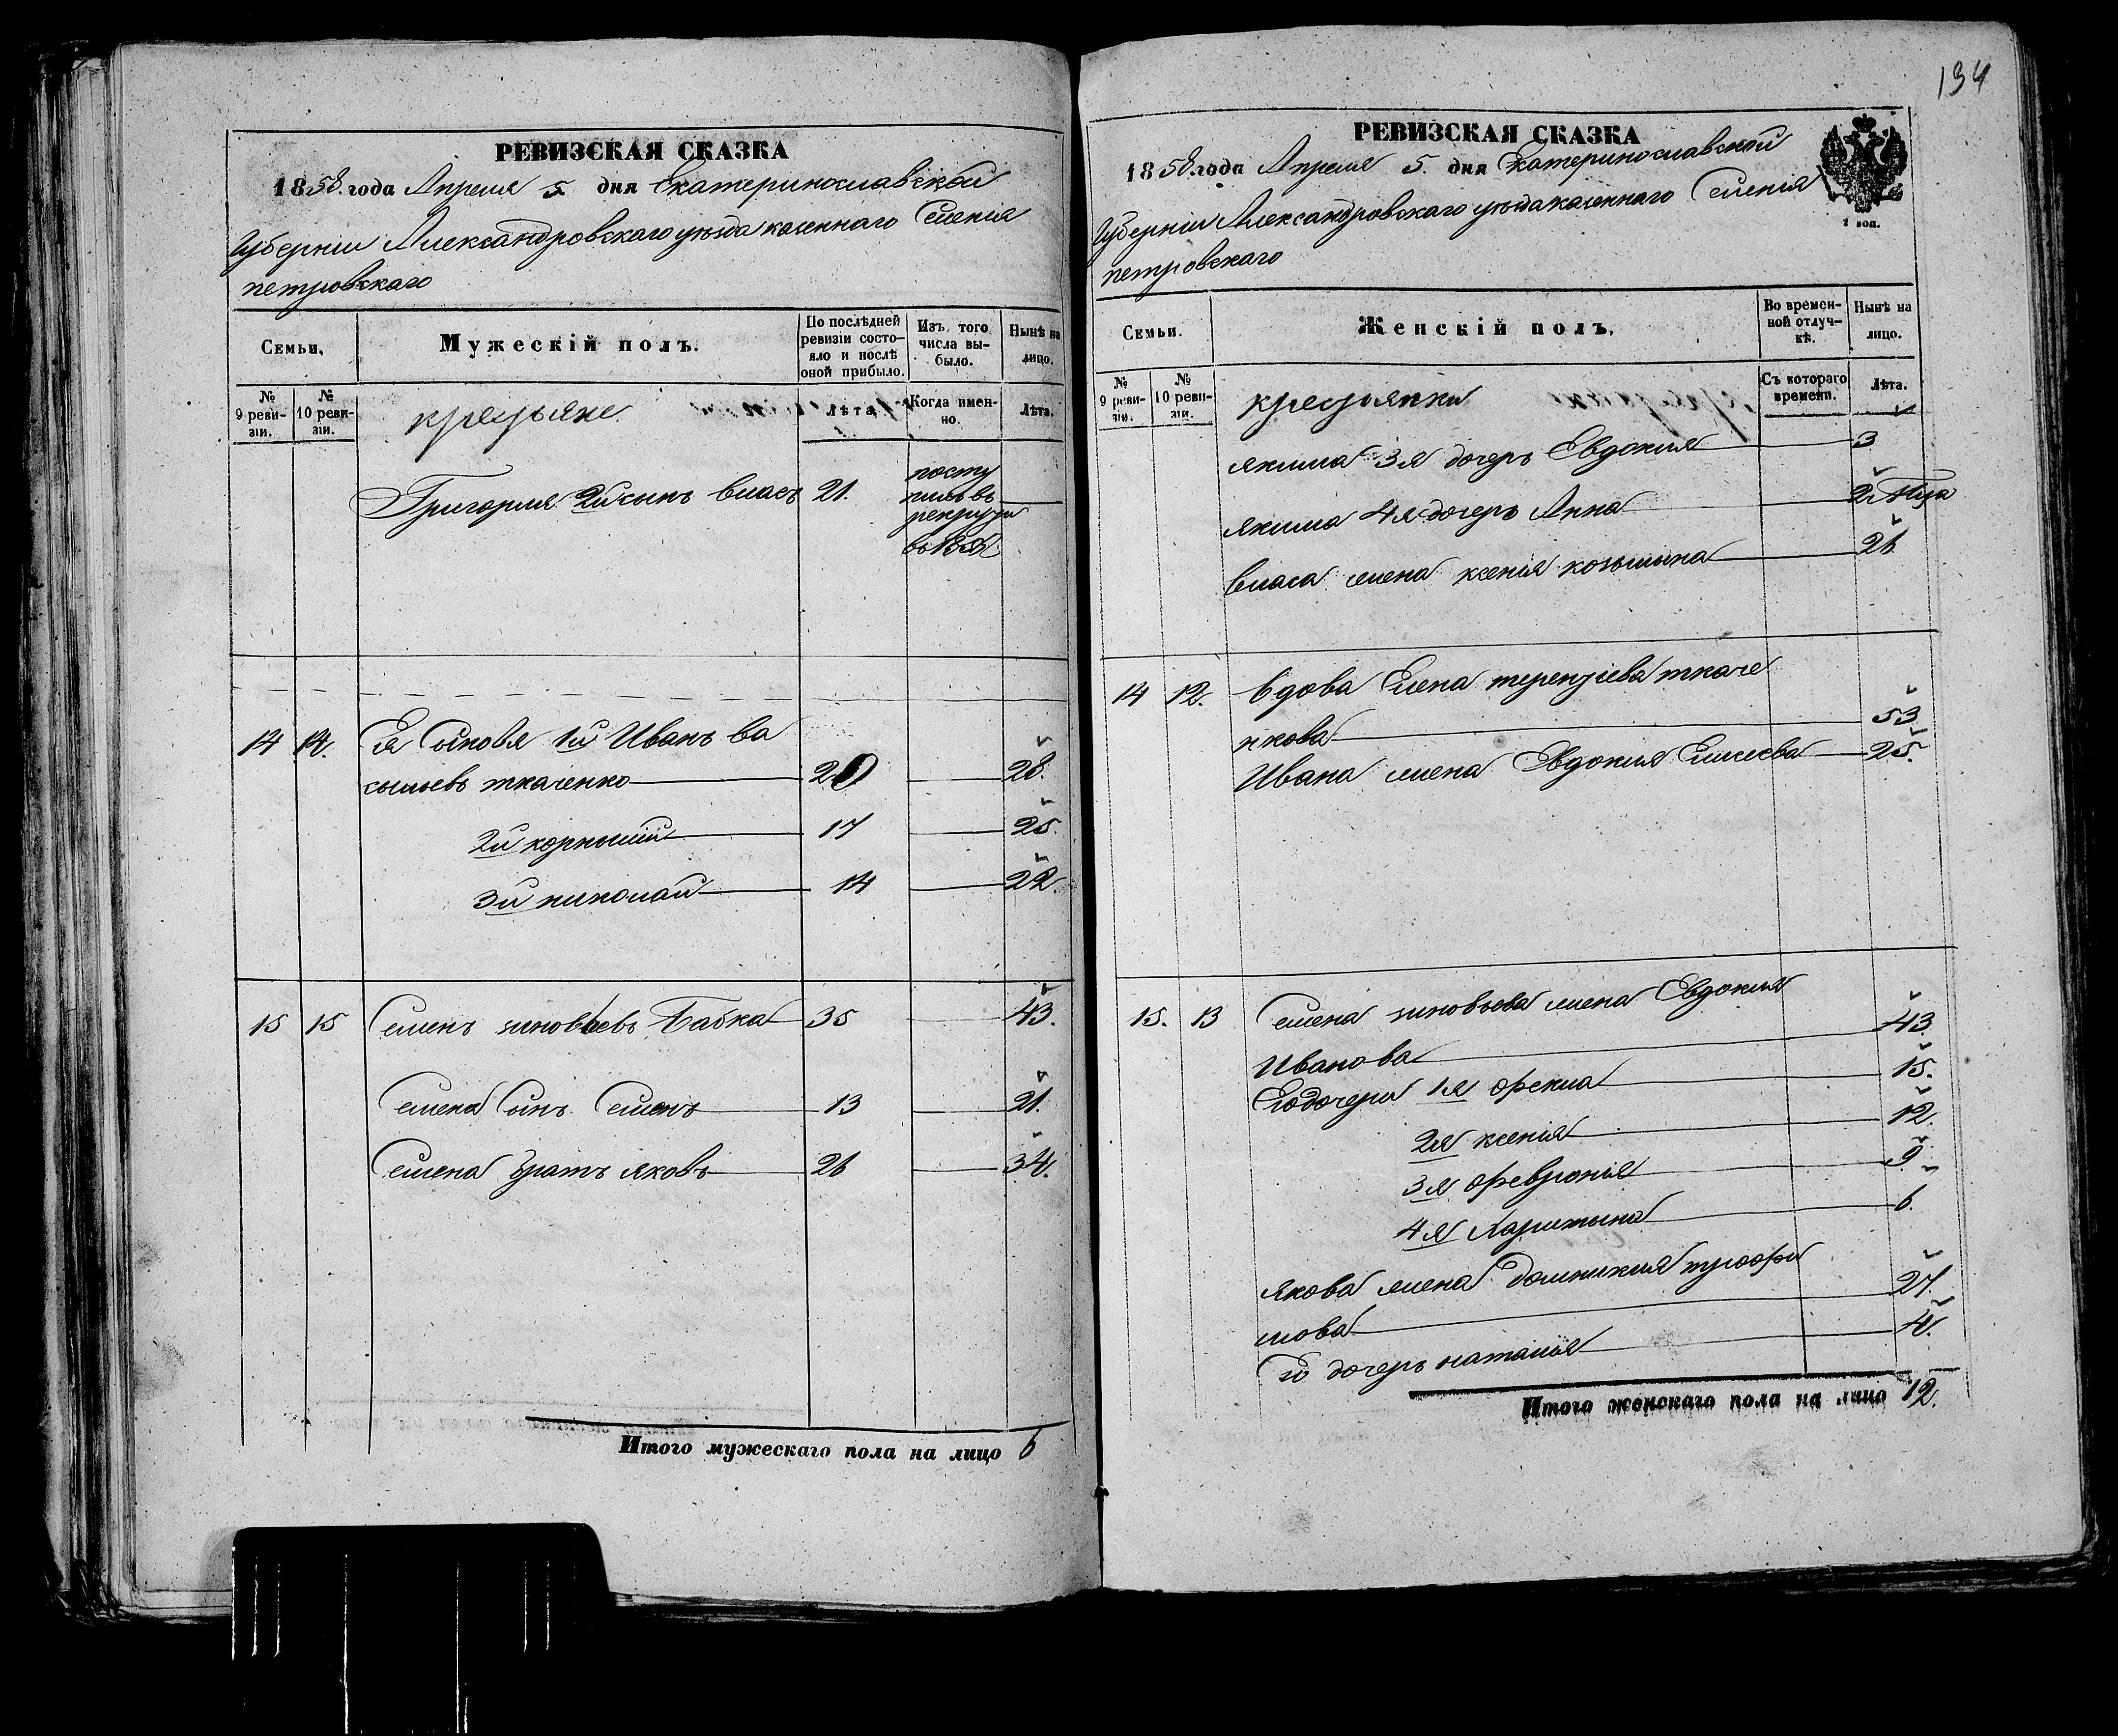 134
РЕВИЗСКАЯ СКАЗКА
1858. года Апреля 5. дня Екатеринославской
Губерніи Александровскаго уезда казеннаго Селенія
петровскаго
Семьи,
Мужескій полъ.
По послѣдней ревизіи состояло и послѣ оной прибыло.
Изъ того числа выбыло.
Нынѣ на лицо.
№ 9 ревизіи.
№ 10 ревизіи.
крестьяне
Лѣта
Когда именно.
Лѣта.
Григория 2й сынъ власъ 21. посту
пилъ въ
рекруты
въ
14 14. Ея Сыновя 1й Иванъ ва
сильевъ ткаченко 20 28.
2й корнилий 17 25.
3й николай 14 22.
15 15 Семенъ зиновьевъ Бабка 35 43.
Семена Сынъ Семенъ 13 21.
Семена братъ яковъ 26 34.
Итого мужескаго пола на лицо 6
РЕВИЗСКАЯ СКАЗКА
1858. года Апреля 5. дня Екатеринославской
Губерніи Александровскаго уезда казеннаго Селенія
петровскаго
Семьи.
Женскій полъ.
Во временной отлучкѣ.
Нынѣ на лицо.
№ 9 ревизіи.
№ 10 ревизіи.
крестьянки
Съ котораго времени.
Лѣта.
якима 3я дочерь Евдокия 3
якима 4я дочерь Анна
власа жена ксенія козьмина 26
14 12. вдова Елена терентіева ткаче
нкова 53
Ивана жена Евдокия Елисеева 25.
15. 13 Семена зиновьева жена Евдокия
Иванова 43
Его дочери 1я фекла 15.
2я ксенія 12.
3я февронья 9
4я Харитына 6.
якова жена домникия трофи
мова 27.
Его дочерь наталія 4.
Итого женскаго пола на лицо 12.